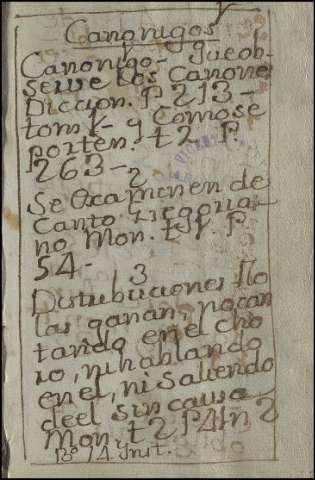 Canonigos
Canonigo- que ob-
serve los Canone
Diccion. P. 213-
tom 1- y Como se
porten. t 2. P.
263-2
Se examinen de
Canto Gregoria-
no Mon. t P.
54-
3
Distribuciones No
las ganan, no can
tando en el cho
ro, ni hablando
en el, ni saliendo
de el sin causa
Mon. t 2. P 4 In 2